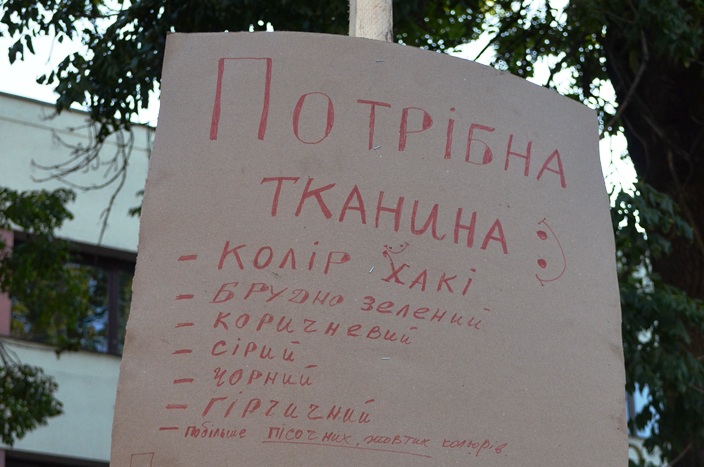 ПОТРІБНА
ТКАНИНА :)
- КОЛІР ХАКІ
- БРУДНО ЗЕЛЕНИЙ
- КОРИЧНЕВИЙ
- СІРИЙ
- ЧОРНИЙ
- ГІРЧИЧНИЙ
- побільше пісочних, жовтих колюрів.